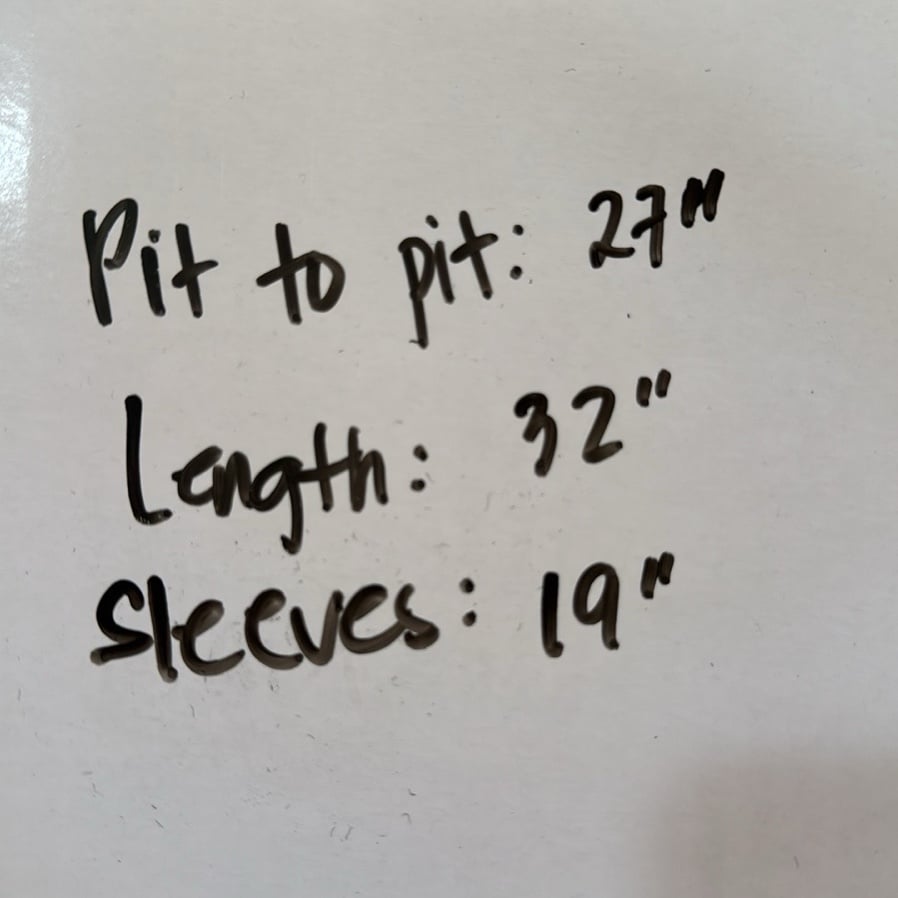 Pit to pit: 27"
Length: 32"
Sleeves: 19"